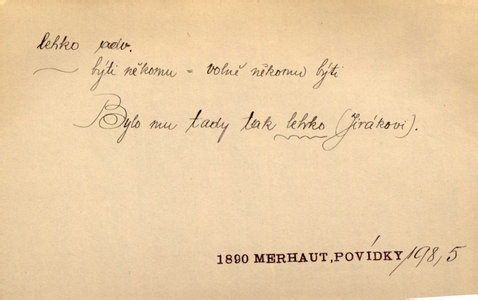 lehko adv.
býti někomu = volně někomu býti
Bylo mu tady tak lehko (Jirákovi).
1890 MERHAUT, POVÍDKY 198,5